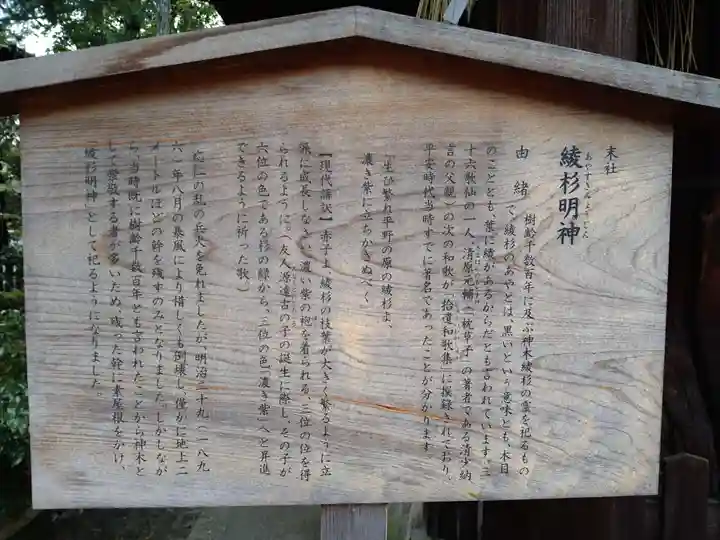 末社
綾杉明神
あやすぎみょうじん
由緒
樹齢千数百年に及ぶ神木綾杉の霊を祀るもの
で、綾杉のあやとは、黒いという意味とも、木目
のことも、葉に綾があるからだとも言われています。三
十六歌仙の一人、清原元輔(「枕草子」の著者である清少納
言の父親)の次の和歌が「拾遺和歌集」に撰録されており、
平安時代当時すでに著名であったことが分かります
「生ひ繁れ平野の原の綾杉よ、
濃き紫に立ちかさぬべく」
【現代語訳】赤子よ、綾杉の枝葉が大きく繁るように立
派に成長しなさい、濃い紫の袍を着られる、三位の位を得
られるように。(友人源遠古の子の誕生に際し、その子が
六位の色である杉の緑から、三位の色「濃き紫」へと昇進
できるように祈った歌)
応仁の乱の兵火を免れましたが、明治二十九(一八九
六)年八月の暴風により惜しくも倒壊し、僅かに地上二
メートルほどの幹を残すのみとなりました。しかしなが
ら、当時既に樹齢千数百年とも言われたことから神木と
して崇敬する者が多いため、残った幹に素屋根をかけ、
「綾杉明神」として祀るようになりました。